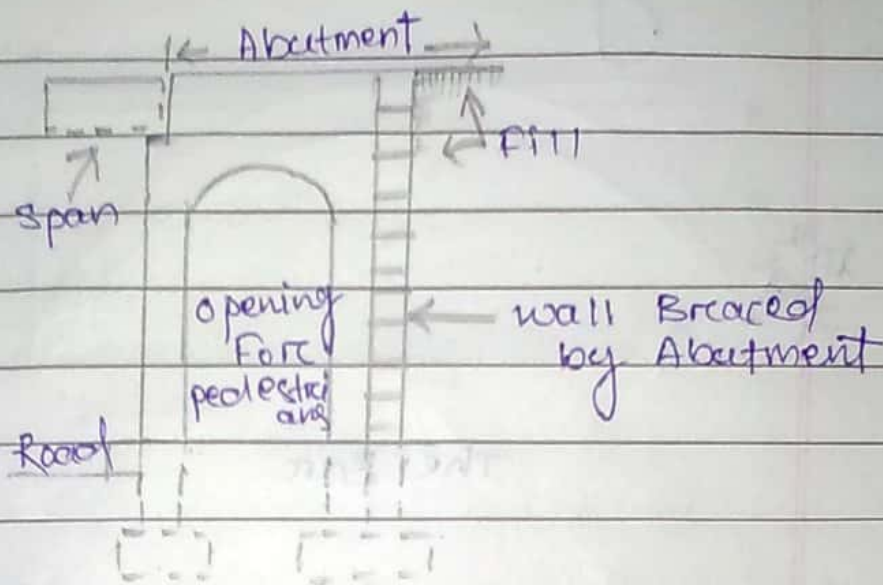 Abutment
Fill
Span
opening
For
pedestri
ans
wall Braced
by Abutment
Road